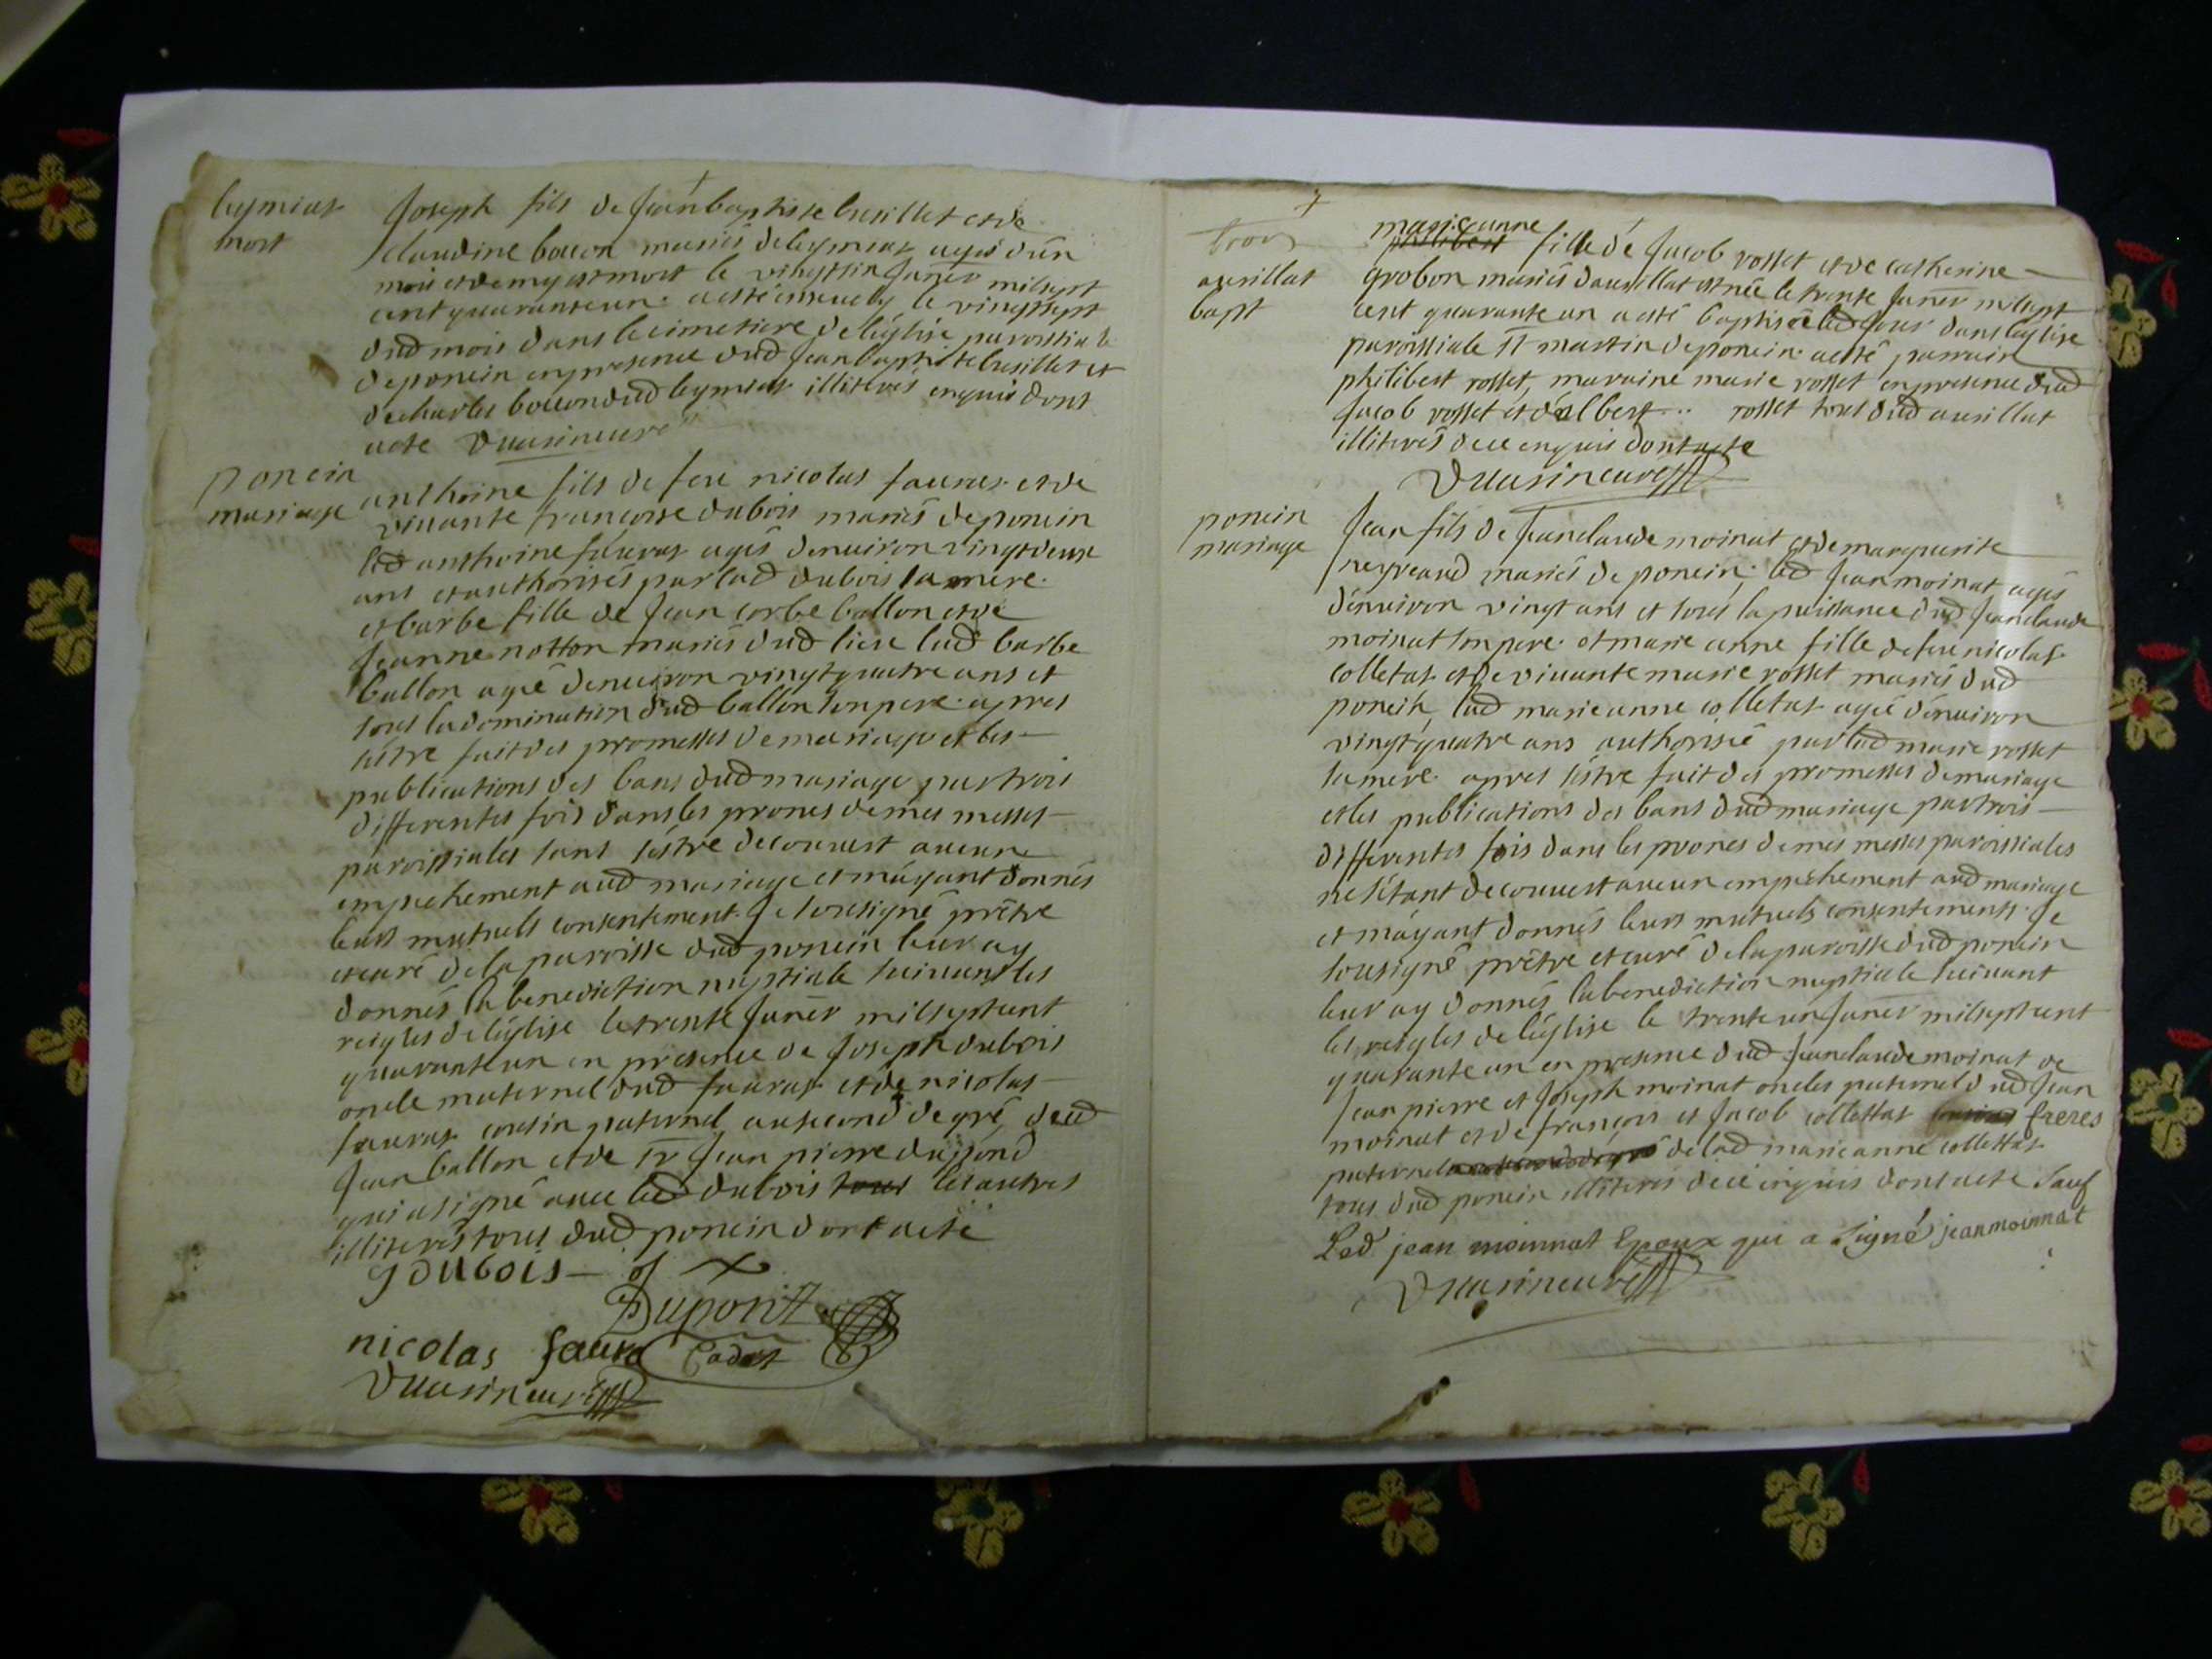 leymiat
mort
Joseph fils de Jean baptiste brillet et de
claudine bocon mariés de leymiat agés d'ún
mois et demy est mort le vihgt six janër mil sept
cent quarante un. a esté ensevely le vingt sept
dud mois dans le cimetiere de léglise paroissiale
de poncin en presence dud Jean baptiste brillet et
de charles bocon dud leymiat illiterés enquis dont
acte
poncin
mariage
anthoine fils de feu nicolas fauras et de
vivante francoise dubois mariés de poncin
led anthoine fauras agés denviron vingt deux
ans et authorisés par lad dubois sa mere.
et barbe fille de Jean corbe ballon et de
Jeanne notton mariés dud lieu lad barbe
ballon agée denviron vingt quatre ans et
sous la domination dud ballon son pere. apres
sestre fait des promesses de mariage et les
publications des bans dud mariage par trois
differentes fois dans les prones de mes messes
paroissiales sans séstre decouvert aucun
empechement aud mariage et máyant donnés
leurs mutuels consentement. Je sousigné prêtre
et curé de la paroisse dud poncin leur ay
donnés la benediction nuptiale suivant les
reigles de léglise le trente janër mil sept cent
quarante un en presence de Joseph dubois
oncle maternel dud fauras et de nicolas
fauras cousin paternel au second degré, dud
Jean ballon et de Sr Jean pierre dupond
qui a signé avec led dubois tous les autres
illiterés tous dud poncin dont acte
J DUbois
Dupont
nicolas faura Cadet
bapt
marie anne
philibert fille dé Jacob rosset et de catherine
grobon mariés daurillat est née le trente janër mil sept
cent quarante un a esté baptisée led jour dans léglise
paroissiale St martin de poncin. a esté parrain
philibert rosset, maraine marie rosset en presence dud
Jacob rosset et dálbert... rosset tous dud aurillat
illiterés de ce enquis dont acte
poncin
mariage
Jean fils de Jean claude moinat et de marguerite
neyreaud mariés de poncin, led Jean moinat agés
dénviron vingt ans et sous la puissance dud Jean claude
moinat son pere. et marie anne fille de feu nicolas
colletas et de vivante marie rosset mariés dud
poncin, lad marie anne colletas agée dénviron
vingt quatre ans authorisée par lad marie rosset
sa mere. apres séstre fait des promesses de mariage
et les publications des bans dud mariage par trois
differentes fois dans les prones de mes messes paroissiales
ne sétant decouvert aucun empechement aud mariage
et máyant donnés leurs mutuels consentements. Je
sousigné prêtre et curé de la paroisse dud poncin
leur ay donnés la benediction nuptiale suivant
les reigles de léglise le trente un janër mil sept cent
quarante un en presence dud Jean claude moinat de
Jean pierre et Joseph moinat oncles paternel dud Jean
moinat et de francois et Jacob collettas freres
paternel de lad marie anne collettas
tous dud poncin illiterés de ce enquis dont acte Sauf
Led jean moinnat Epoux qui a signé jean moinnat